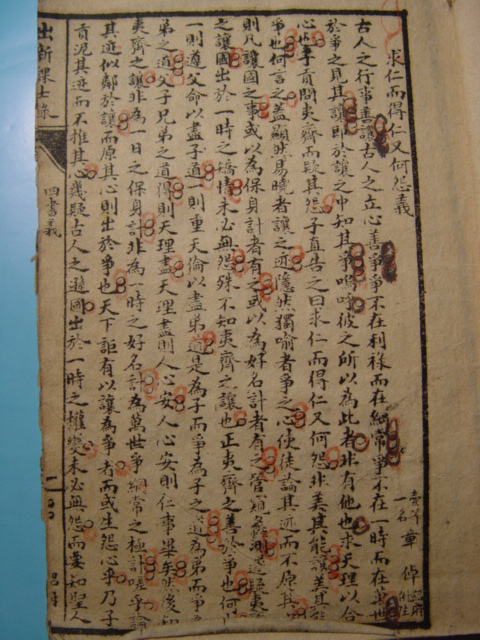 求仁而得仁又何怨義
壹等
一名
章倬
古人之行事善讓古人之立心善爭爭不在利祿而在綱常爭不在一時而在萬世
於爭之見其讓則於讓之中知其爭嗚呼彼之所以為此者非有他也求天理以合
心也子貢問夷齊而疑其怨子直告之曰求仁而得仁又何怨非美其能讓美其
爭也何言之蓋顯然易曉者讓之迹隱然獨喻者爭之心使徒論其迹而不原其
則凡讓國之事或以為保身計者有之或以為好名計者有之管窺 疑夷
之讓國出於一時之矯情未必無怨殊不知夷齊之讓也正夷齊之善於爭也何
一則遵父命以盡子道一則重天倫以盡弟道是為子而爭為子之道為弟而爭
弟之道父子兄弟之道得則天理盡天理盡則人心安人心安則仁事畢矣然後知
夷齊之讓非為一日之保身計非為一時之好名計為萬世爭綱常之極計嗟乎論
其迹似鄰於讓而原其心則出於爭也天下詎有以讓為爭者而或生怨心乎乃子
貢泥其迹而不推其心幾疑古人之遜國出於一時之權變未必無怨而要知聖人
出新課士錄
四書義